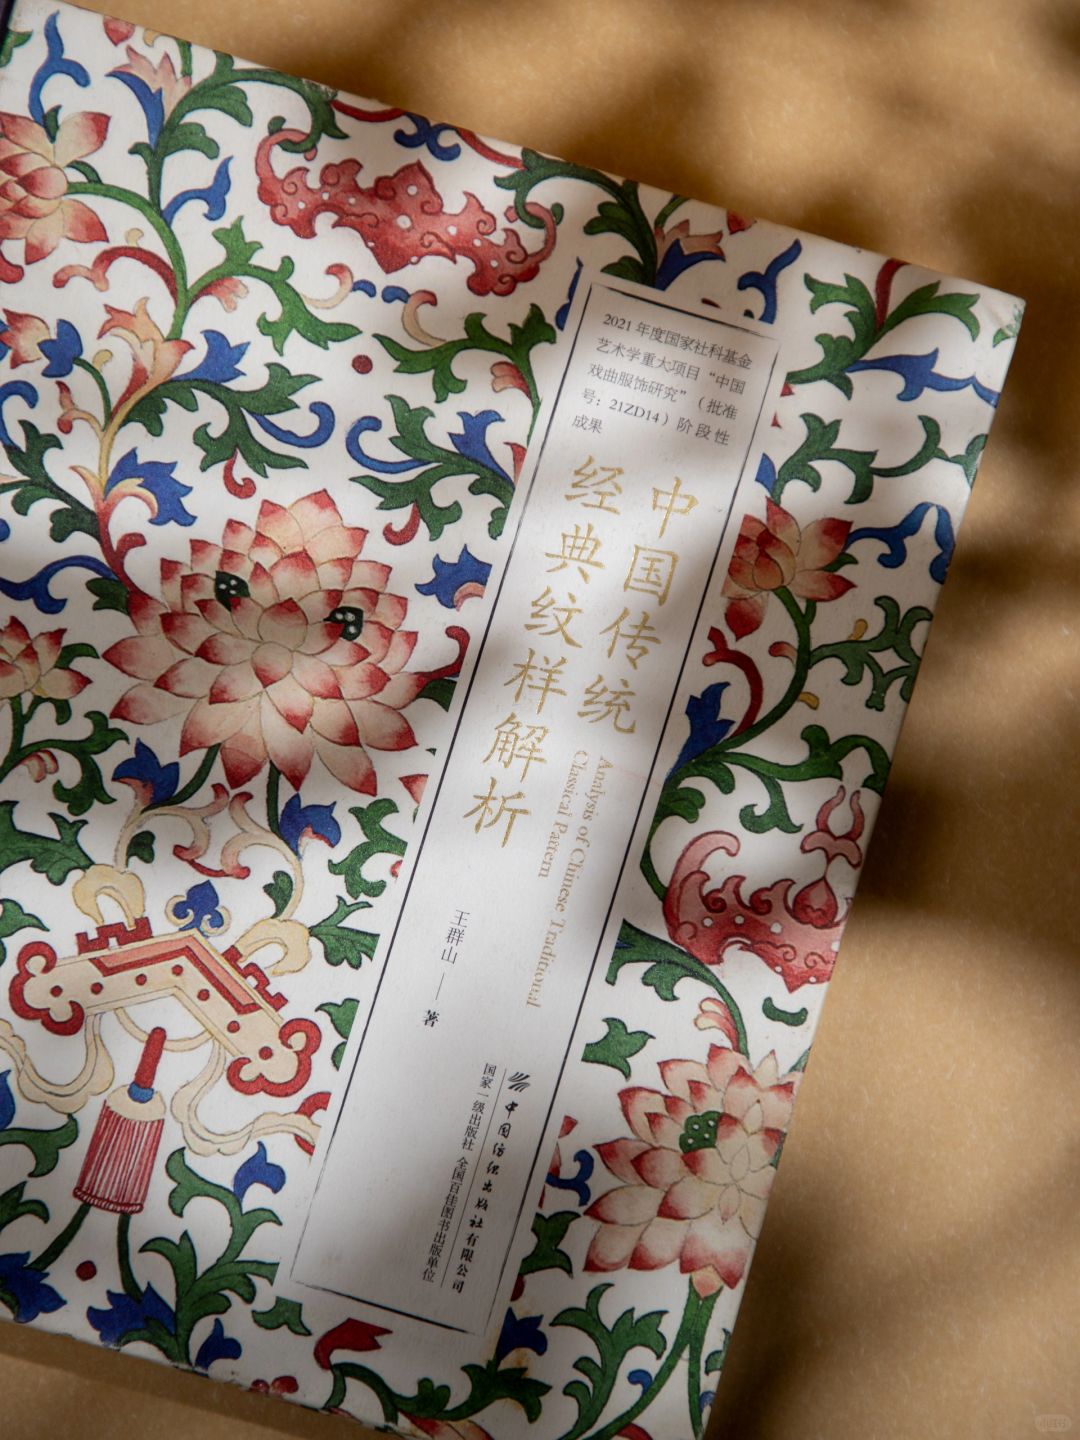 2021 年度国家社科基金
艺术学重大项目“中国
戏曲服饰研究”（批准
号：21ZD14）阶段性
成果
中国传统
经典纹样解析
Analysis of Chinese Traditional
Classical Pattern
王群山——著
中国纺织出版社有限公司
国家一级出版社 全国百佳图书出版单位
小红书